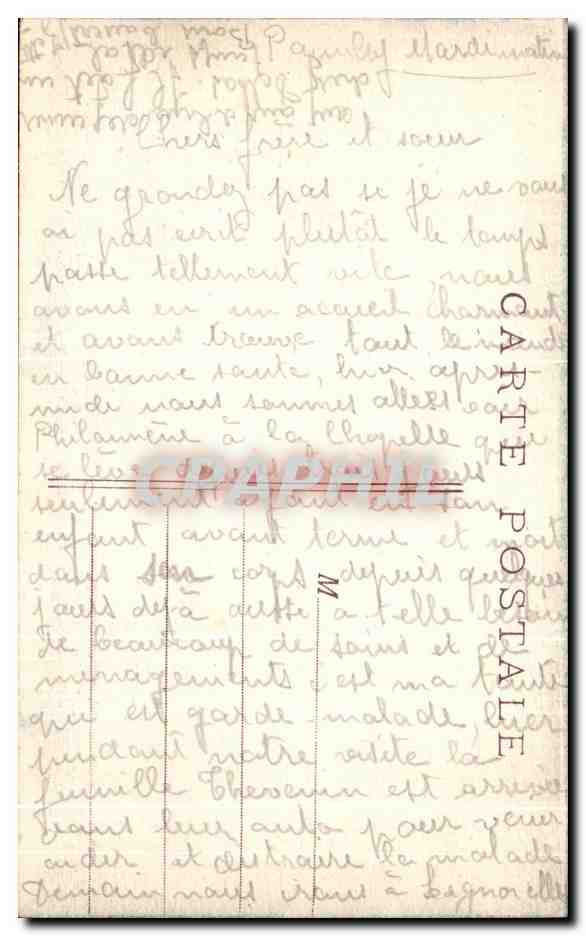 Mardi matin
Chers frère et soeur
Ne grondez pas si je ne vous
ai pas écrit plutôt le temps
passe tellement vite, nous
avons eu un accueil charmant
et avons trouvé tout le monde
en bonne santé, hier après-
midi nous sommes allés voir
Philomène à la Chapelle qui
se lève depuis
seulement ayant eu son
enfant avant terme et mort
dans son corps depuis quelques
jours déjà aussi a t'elle besoin
de beaucoup de soins et de
ménagements c'est ma tante
qui est garde-malade, hier
pendant notre visite la
famille Thevenin est arrivée
dans leur auto pour venir
aider et distraire la malade
Demain nous irons à
CARTE POSTALE
M
CPAPHIL